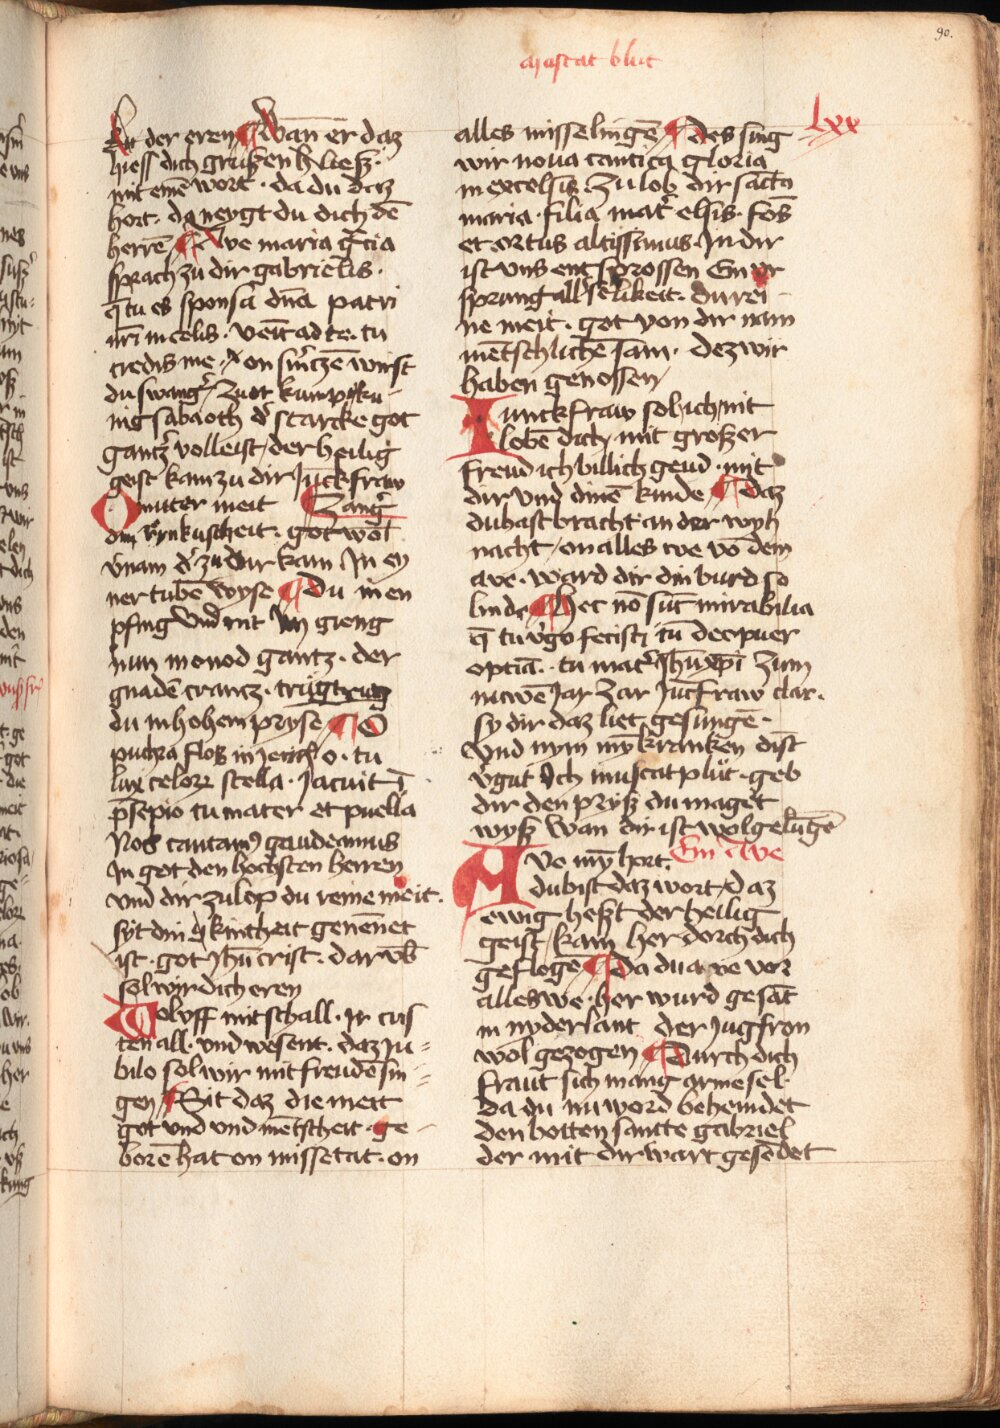 90.
Muscat blut
lxx
der eren ¶ Wan er daz
hiess dich grußen h̾ließ·
mit eine͂ wort · da du daz
hort · da neygt du dich de͂
herre͂ ¶ Ave maria gr̃cia
sprach zu dir gabrielis ·
q̃ tu es sponsa dn̄a patri
nr̃i in celis · venit ad te · tu
credis me · on smˀcze͂ wirst
du swangˀ / Zuor kump ku⸗
nig sabaoth dˀ starcke got
gantzˀ volleist / der heilig
geist kam zu dir Ju͂ckfraw
O muter meit ¶ Zangˀ
din kuscheit · got wol
vˀnam dˀ zu dir kam In ey
ner tube͂ wyse ¶ Du in en
pfing vnd mit gieng
nun monod gantz · der
gnade͂ crantz · trug
du in hohem pryse ¶ O
pulchra flos in Jericho · tu
lux celorꝝ stella · Jacuit i͂
p̃sepio tu mater et puella
Nos cantamꝰ gaudeamus
In got den hochsten herren
vnd dir zu lop du reine meit ·
syt din kintheit gene͂net
ist · got Jhu͂ crist · daru͂b
sol wir dich eren
Wolvff mit schall · Ir cris
ten all · vnd wesent · daz Ju⸗
bilo sol wir mit freude͂ sin⸗
gen ¶ Sit daz die meit
got vnd vnd me͂tscheit · ge⸗
bore͂ hat on missetat · on
alles misselinge͂ ¶ Des sing
wir noua cantica gloria
in excelsis Zu lob dir san͂cta
maria · filia matˀ elsis · fo͂s
et ortus altissimus · In dir
ist vns entsprossen Ein vr
sprung allˀ selikeit · du rei⸗
ne meit · got von dir nam
me͂tschliche͂ sam · dez wir
haben genossen
Junckfraw sol ich nit
lobe͂ dich · mit großer
freud ich billich geud · mit
dir vnd dine͂ kinde ¶ Daz
du hast bracht an der wyh
nacht / on alles we vo͂ dem
ave · ward dir din burd so
linde ¶ Hec no͂ su͂t mirabilia
q̃ tu vˀgo fecisti tu͂ decpuer
optia͂ · tu matˀ Jhu͂ xpi͂ Zum
nuwe͂ Jar Zar Ju͂cfraw clar ·
sy dir daz liet gesunge͂ ·
vnd nym my͂ kranken dist
vˀgut Ich muscatplüt · geb
dir den pryß du maget
wyß wan dir ist wolgelu͂ge͂
Ein Ave
Ave my͂ hort ·
du bist daz wort / daz
ewig heßt der heilig
geist / kam her dorch dich
gefloge͂ ¶ Da du ave vor
alles we · her wurd gesa͂t
in nyderlant der Jugfron
wol gezogen ¶ Durch dich
fraut sich mang arme sel ·
da du nu word behendet
den botten sancte gabriel
der mit dir wart gese͂det